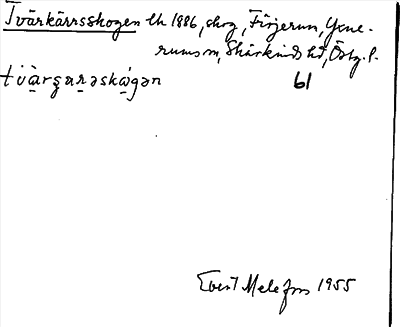 Tvärkärrsskogen ek 1886, skog, Förjerum, Yxne-
rums sn, Skärkinds hd, Östg. l.
61
Evert Melefors 1955